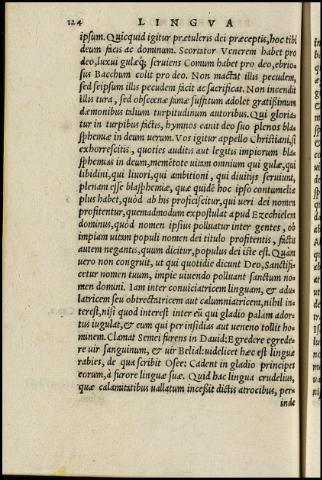 124 LINGVA
ipsum. Quicquid igitur prætuleris dei præceptis, hoc tibi
deum facis ac dominum. Scortator Venerem habet pro
deo, luxui gulæq; seruiens Comum habet pro deo, ebrio-
sus Bacchum colit pro deo. Non mactat illis pecudem,
sed seipsum illis pecudem facit ac sacrificat. Non incendit
illis tura, sed obscœnæ famæ suffitum adolet gratissimum
dæmonibus talium turpitudinum autoribus. Qui gloria-
tur in turpibus factis, hymnos canit deo suo plenos blas
phemiæ in deum uerum. Vos igitur appello Christiani, si
exhorrescitis, quoties auditis aut legitis impiorum bla-
sphemias in deum, memêtote uitam omnium qui gulæ, qui
libidini, qui liuori, qui ambitioni, qui diuitijs seruiunt,
plenam esse blasphemiæ, quæ quidē hoc ipso contumeliæ
plus habet, quòd ab his proficiscitur, qui ueri dei nomen
profitentur, quemadmodum expostulat apud Ezechielem
dominus, quòd nomen ipsius polluatur inter gentes, ob
impiam uitam populi nomen dei titulo profitentis, factis
autem negantis, quum dicitur, populus dei iste est. Quàm
uero non congruit, ut qui quotidie dicunt Deo, Sanctifi-
cetur nomen tuum, impie uiuendo polluant sanctum no-
men domini. Iam inter conuiciatricem linguam, & adu-
latricem seu obtrectatricem aut calumniatricem, nihil in-
terest, nisi quod interest inter eū qui gladio palam ador-
tus iugulat, & eum qui per insidias aut ueneno tollit ho-
minem. Clamat Semei furens in Dauid: Egredere egrede-
re uir sanguinum, & uir Belial: uidelicet hæc est linguæ
rabies, de qua scribit Osee: Cadent in gladio principes
eorum, à furore linguæ suæ. Quid hac lingua crudelius,
quæ calamitatibus uallatum incessit dictis atrocibus, per-
inde